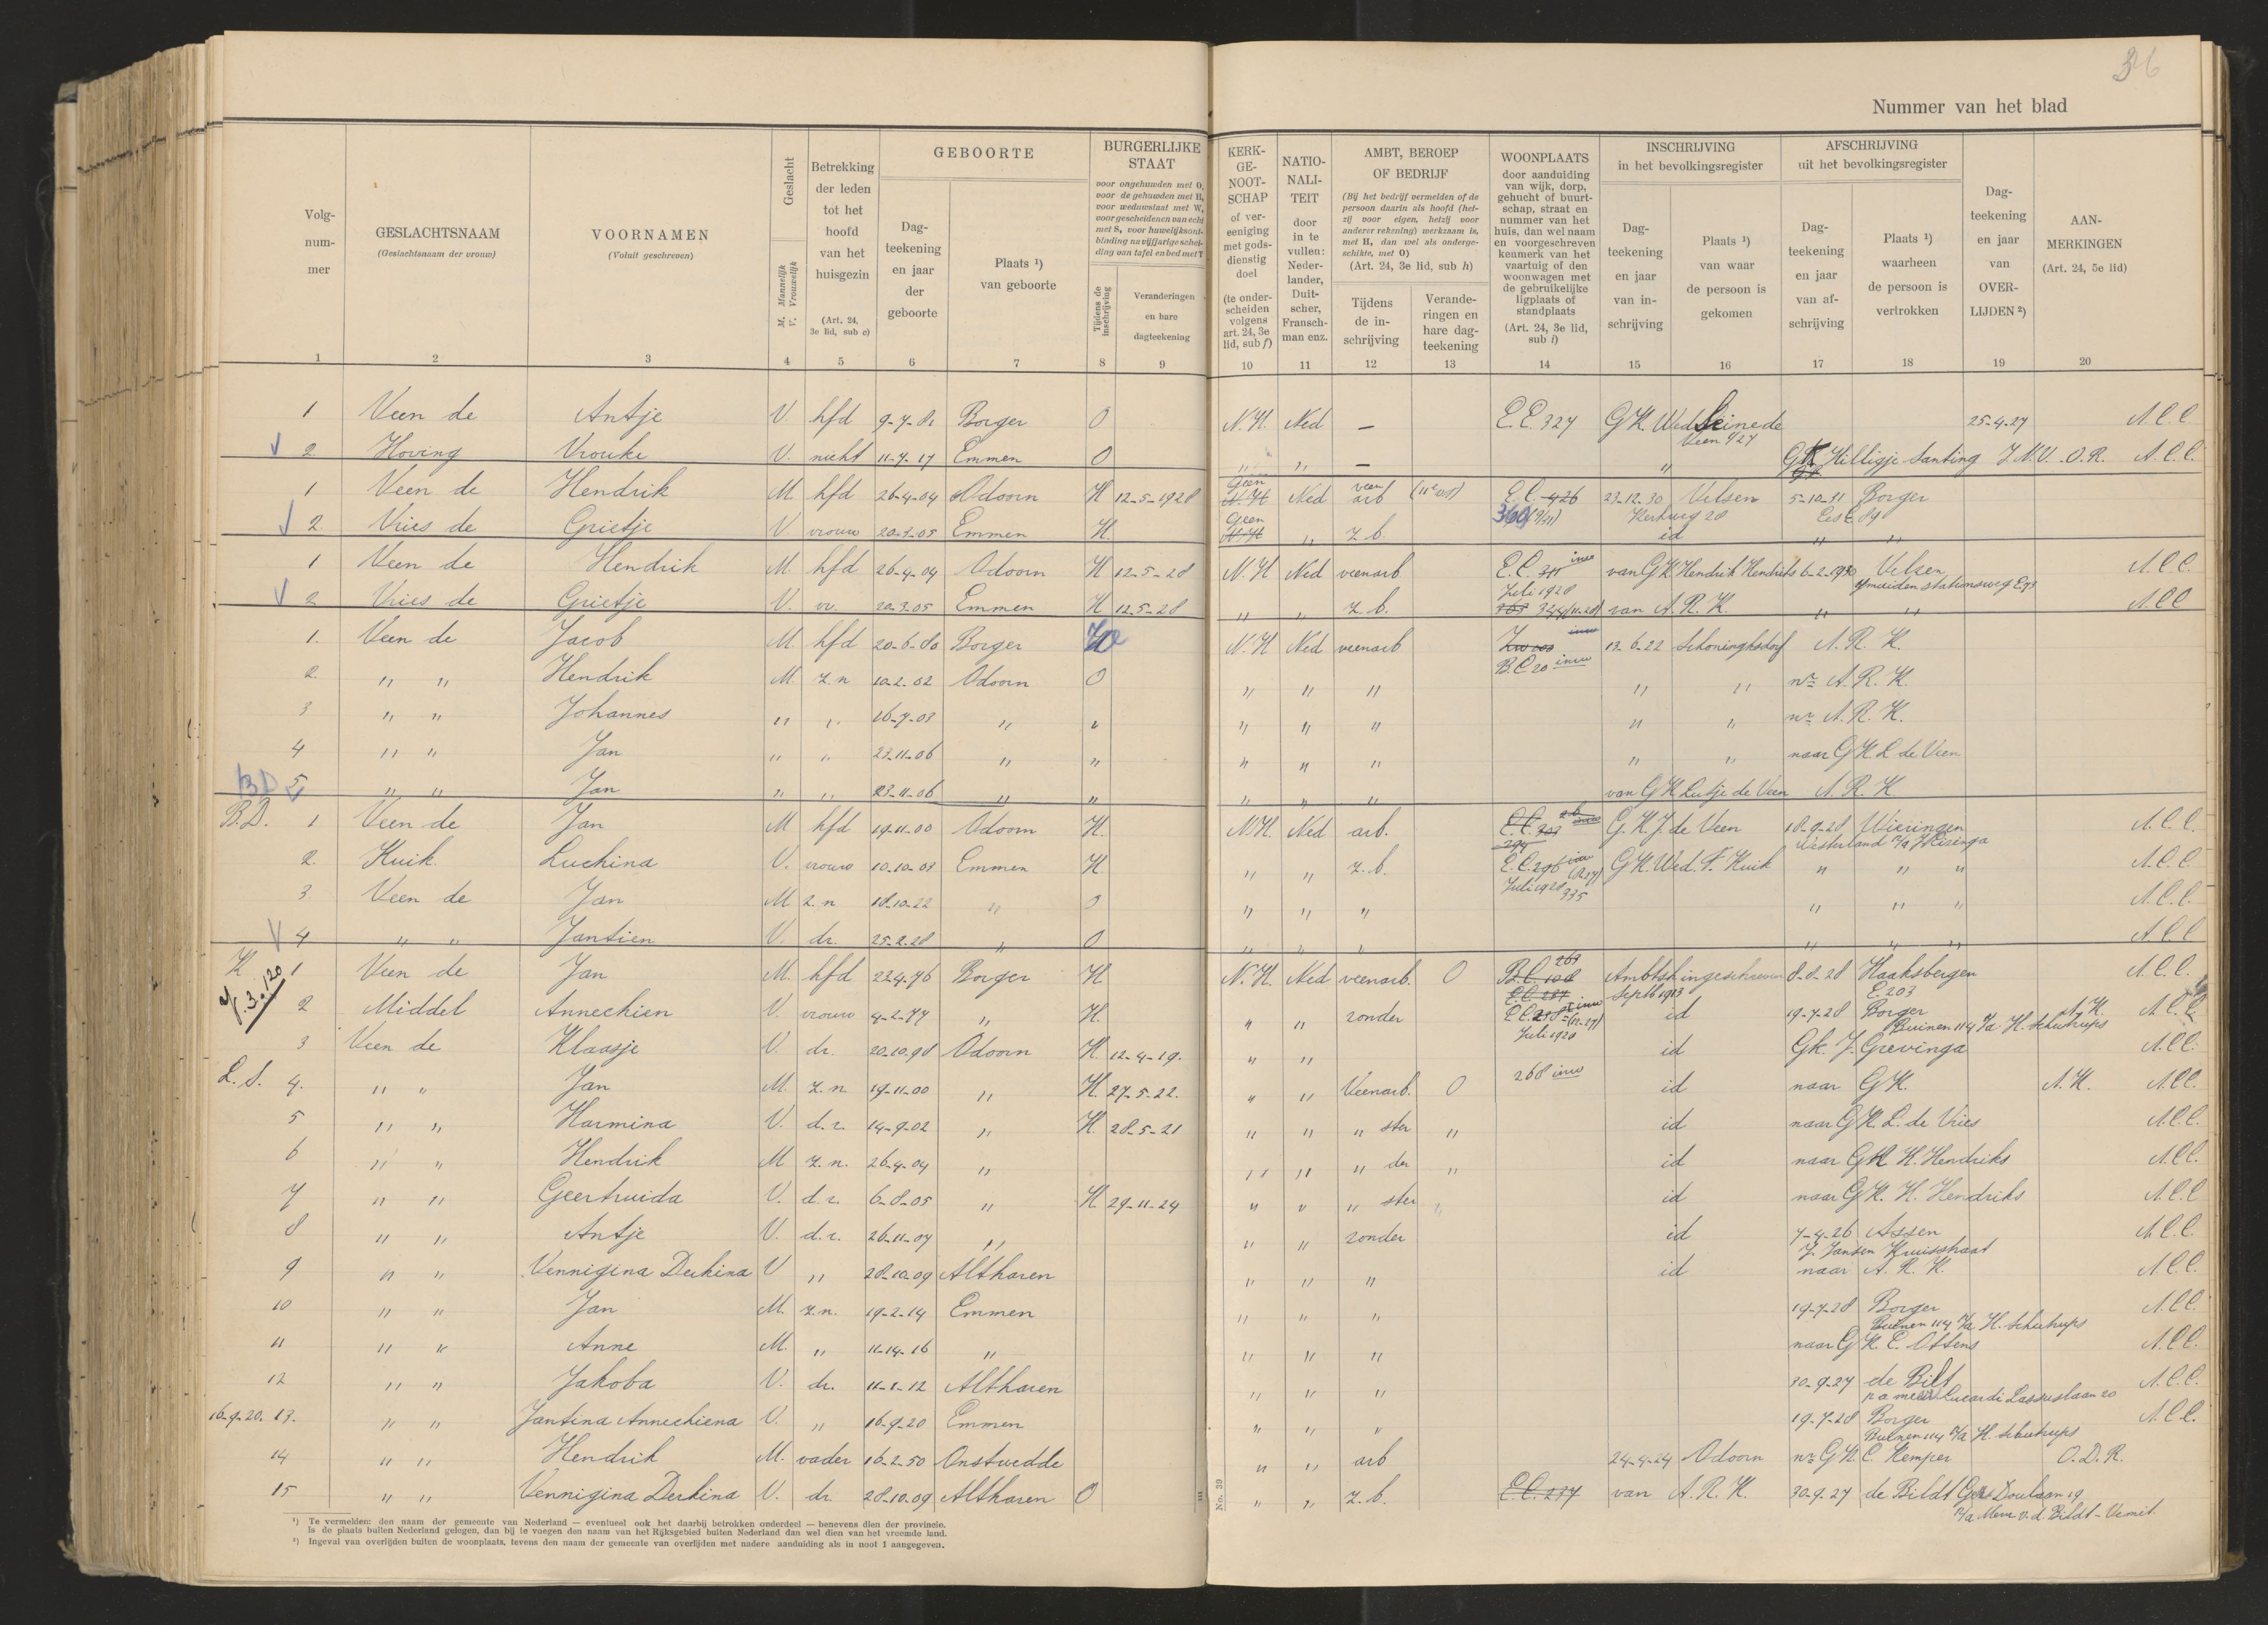 36
Nummer van het blad
Volg-
num-
mer
GESLACHTSNAAM
(Geslachtsnaam der vrouw)
VOORNAMEN
(Voluit geschreven)
Geslacht
M. Mannelijk
V. Vrouwelijk
Betrekking
der leden
tot het
hoofd
van het
huisgezin
(Art. 24,
3e lid, sub c)
GEBOORTE
Dag-
teekening
en jaar
der
geboorte
Plaats ¹)
van geboorte
BURGERLIJKE
STAAT
voor ongehuwden met O,
voor de gehuwden met H,
voor weduwstaat met W,
voor gescheidenen van echt
met S, voor huwelijksont-
binding na vijfjarige schei-
ding van tafel en bed met T
Tijdens de
inschrijving
Veranderingen
en hare
dagteekening
KERK-
GE-
NOOT-
SCHAP
of ver-
eeniging
met gods-
dienstig
doel
(te onder-
scheiden
volgens
art. 24, 3e
lid, sub f)
NATIO-
NALI-
TEIT
door
in te
vullen:
Neder-
lander,
Duit-
scher,
Fransch-
man enz.
AMBT, BEROEP
OF BEDRIJF
(Bij het bedrijf vermelden of de
persoon daarin als hoofd (het-
zij voor eigen, hetzij voor
anderer rekening) werkzaam is,
met H, dan wel als onderge-
schikte, met O)
(Art. 24, 3e lid, sub h)
Tijdens
de in-
schrijving
Verande-
ringen en
hare dag-
teekening
WOONPLAATS
door aanduiding
van wijk, dorp,
gehucht of buurt-
schap, straat en
nummer van het
huis, dan wel naam
en voorgeschreven
kenmerk van het
vaartuig of den
woonwagen met
de gebruikelijke
ligplaats of
standplaats
(Art. 24, 3e lid,
sub i)
INSCHRIJVING
in het bevolkingsregister
Dag-
teekening
en jaar
van in-
schrijving
Plaats ¹)
van waar
de persoon is
gekomen
AFSCHRIJVING
uit het bevolkingsregister
Dag-
teekening
en jaar
van af-
schrijving
Plaats ¹)
waarheen
de persoon is
vertrokken
Dag-
teekening
en jaar
van
OVER-
LIJDEN ²)
AAN-
MERKINGEN
(Art. 24, 5e lid)
1 2 3 4 5 6 7 8 9 10 11 12 13 14 15 16 17 18 19 20
1 Veen de Antje V. hfd Borger O N.H. Ned — E.C. 327 G.K. Wed. de Veen 25-4-27 A.C.C.
2 Hoving Vrouke V. nicht 11-7-17 Emmen O " " — " G.K. Hilligje Santing O.R. A.C.C.
1 Veen de Hendrik M. hfd 26-4-04 Odoorn H 12-5-1928 Geen N.H. Ned veen arb E.C. 426 23-12-30 Velsen 5-10-31 Borger
Kerkweg 28 Ees E 89
2 Vries de Grietje V. vrouw 20-3-05 Emmen H. Geen N.H. " z.b. id " "
1 Veen de Hendrik M. hfd 26-4-04 Odoorn H 12-5-28 N.H. Ned veenarb E.C. inw van G.K. Hendrik Hendriks 6-2-1930 Velsen A.C.C.
Juli 1928 Ymuiden stationsweg
2 Vries de Grietje V. vr. 20-3-05 Emmen H 12-5-28 " " z.b. 344 (11-28) van A.R.K. " " A.C.C
1. Veen de Jacob M. hfd 20-6-80 Borger N.H. Ned veenarb 13-6-22 Schoninghsdorf A.R.K.
B.C. 20 inw
2 " " Hendrik M. z.n 10-2-02 Odoorn O " " " " " nr A.R.K.
3 " " Johannes " " 16-7-03 " " " " " " " nr A.R.K.
4 " " Jan " " 23-11-06 " " " " " " " naar G.K. L de Veen
5 " " Jan " " 23-11-06 " " " " " van G.K. Lutje de Veen A.R.K.
B.D. 1 Veen de Jan M hfd 19-11-00 Odoorn H. N.H. Ned arb. G.K. J. de Veen 18-9-28 Wieringen A.C.C.
2 Kuik Luchina V. vrouw 10-10-03 Emmen H. " " z.b. E.C. 296 G.K. Wed. F. Kuik " " " A.C.C.
Juli 1928 335
3 Veen de Jan M z.n 18-10-22 " O " " " " " " A.C.C.
4 " " Jantien V. dr. 25-2-28 " O " " " " " " A.C.C
K. 1 Veen de Jan M. hfd 22-4-76 Borger H. N.H. Ned veenarb. O B.C. 108 Ambtsh ingeschreven 8-8-28 Haaksbergen A.C.C.
Sept 1913 E. 203
2 Middel Annechien V. vrouw 4-2-77 " H. " " zonder id 19-7-28 Borger A.K. A.C.C.
Juli 1928 Buinen 114 p/a H. Schutrups
3 Veen de Klaasje V. dr. 20-10-98 Odoorn H. 12-4-19. " " id Gk. J. Grevinga A.C.C.
L.S. 4. " " Jan M. z.n. 19-11-00 " H. 27-5-22. " " Veenarb. O 268 inw id naar G.K. A.K. A.C.C.
5 " " Harmina V. d.r. 14-9-02 " H. 28-5-21 " " " ster " id naar G.K. L. de Vries A.C.C.
6 " " Hendrik M z.n. 26-4-04 " " " " der " id naar G.K. H. Hendriks A.C.C.
7 " " Geertruida V. d.r. 6-8-05 " H 29-11-24 " " " ster " id naar G.K. H. Hendriks A.C.C
8 " " Antje V. d.r. 26-11-07 " " " zonder id 7-4-26 Assen A.C.C.
J. Jansen Kruisstraat
9 " " Vennigina Derkina V " 28-10-09 Altharen " " " id naar A.R.K. A.C.C.
10 " " Jan M. z.n. 19-2-14 Emmen " " " 19-7-28 Borger A.C.C.
Buinen 114 p/a H. Schutrups
11 " " Anne M. " 11-14-16 " " " " naar G.K. C. Ottens A.C.C.
12 " " Jakoba V. dr. 11-1-12 Altharen " " " 30-9-27 de Bilt A.C.C.
16-9-20. 13. " " Jantina Annechiena V. " 16-9-20 Emmen " " " 19-7-28 Borger A.C.C.
Buinen 114 p/a H. Schutrups
14 " " Hendrik M. vader 16-2-50 Onstwedde " " arb 24-4-24 Odoorn nr G.K. C. Kemper O.D.R.
15 " " Vennigina Derkina V. dr. 28-10-09 Altharen O " " z.b. E.C. 237 van A.R.K. 30-9-27 de Bildt
¹) Te vermelden: den naam der gemeente van Nederland — eventueel ook het daarbij betrokken onderdeel — benevens dien der provincie.
Is de plaats buiten Nederland gelegen, dan bij te voegen den naam van het Rijksgebied buiten Nederland dan wel dien van het vreemde land.
²) Ingeval van overlijden buiten de woonplaats, tevens den naam der gemeente van overlijden met nadere aanduiding als in noot 1 aangegeven.
No. 39